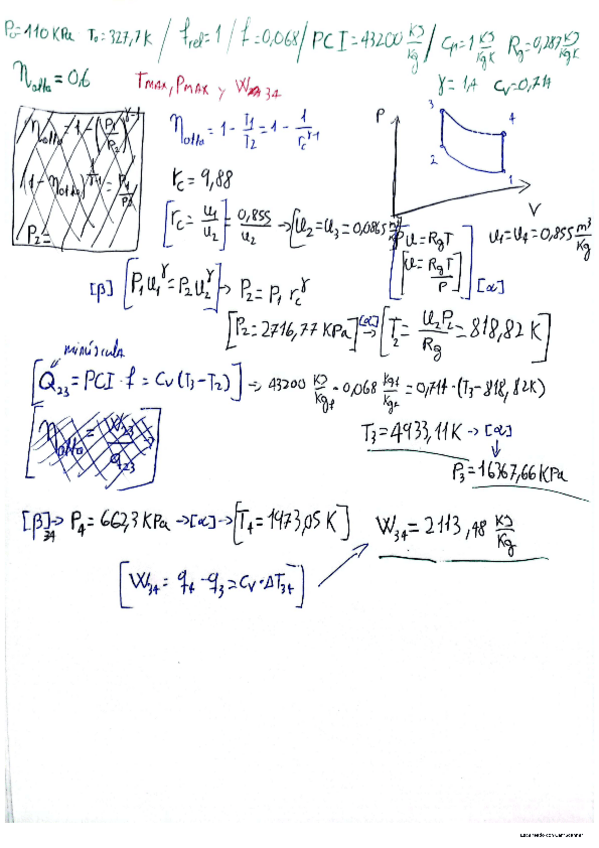 P₀=110 KPa T₀=327,7 K / frel=1 / f=0,068 / PCI=43200 KJ/Kg / Cp=1 KJ/KgK Rg=0,287 KJ/KgK
ηotto=0,6 Tmax, Pmax y W34 γ=1,4 Cv=0,714
ηotto=1-(P1/P2)^γ-1
ηotto=1-T1/T2=1-1/rc^γ-1
P 3 4 2 1 V
rc=9,88
P2=
[rc=u1/u2]=0,855/u2→[u2=u3=0,0865 m³/Kg] Pu=RgT u1=u4=0,855 m³/Kg
[u=RgT/P] [α]
[β] [P1u1^γ=P2u2^γ]→ P2=P1 rc^γ
[P2=2716,77 KPa] [α]→ [T2=u2P2/Rg=818,82 K]
minúscula
[Q23=PCI·f=Cv(T3-T2)]→ 43200 KJ/Kgf·0,068 Kgf/Kga=0,714·(T3-818,82K)
[ηotto=W23/q23] T3=4933,11K→[α]
P3=16367,66 KPa
[β]34→P4=662,3 KPa→[α]→[T4=1973,05 K] W34=2113,48 KJ/Kg
[W34=q4-q3=Cv·ΔT34]
Escaneado con CamScanner